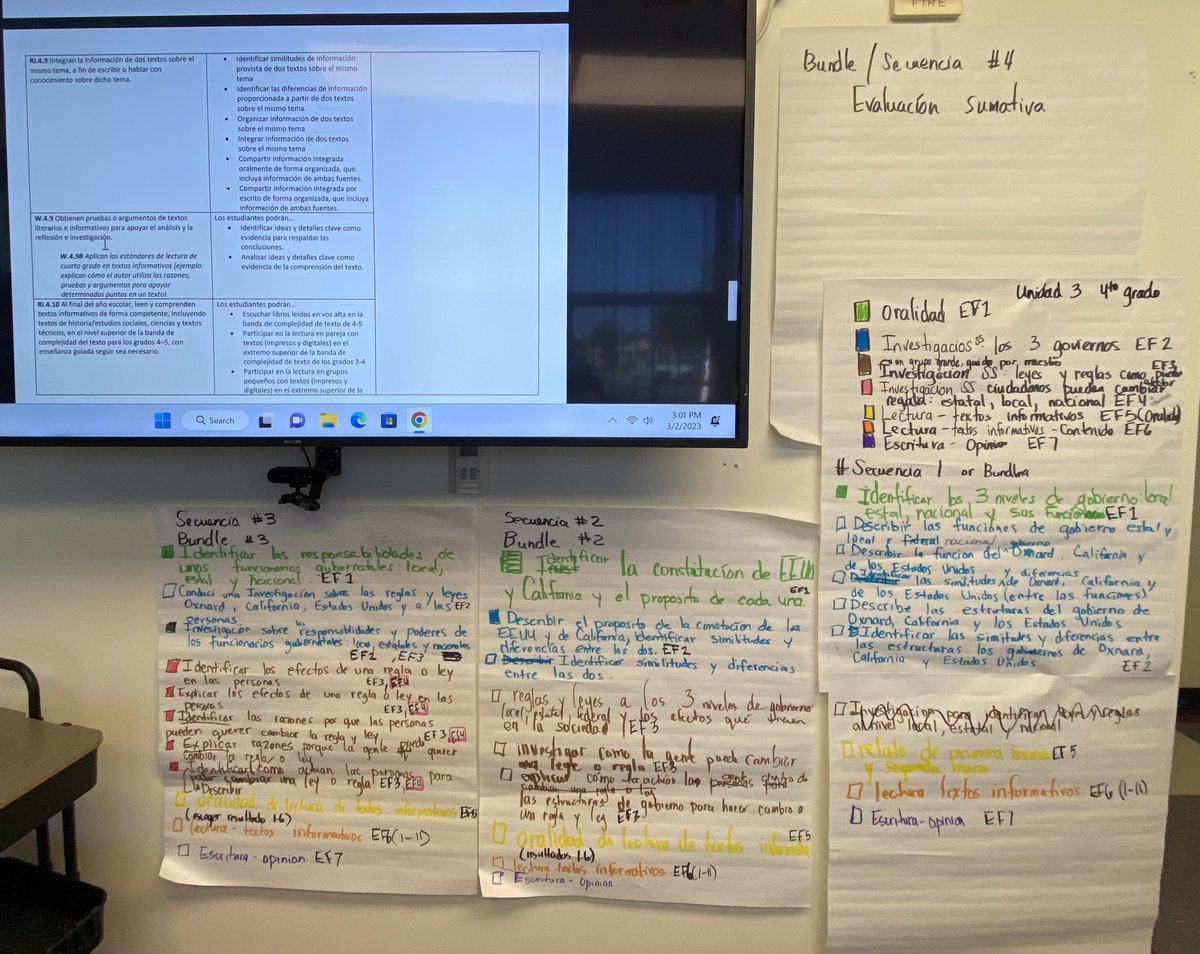 RI.4.9 Integran la información de dos textos sobre el
mismo tema, a fin de escribir o hablar con
conocimiento sobre dicho tema.
Identificar similitudes de información
provista de dos textos sobre el mismo
tema
Identificar las diferencias de información
proporcionada a partir de dos textos
sobre el mismo tema.
Organizar información de dos textos
sobre el mismo tema
Integrar información de dos textos
sobre el mismo tema
Compartir información integrada
oralmente de forma organizada, que
incluya información de ambas fuentes.
Compartir información integrada por
escrito de forma organizada, que incluya
información de ambas fuentes.
W.4.9 Obtienen pruebas o argumentos de textos
literarios e informativos para apoyar el análisis y la
reflexión e investigación.
W.4.9B Aplican los estándares de lectura de
cuarto grado en textos informativos (ejemplo:
explican cómo el autor utiliza las razones,
pruebas y argumentos para apoyar
determinados puntos en un texto).
Los estudiantes podrán...
Identificar ideas y detalles clave como
evidencia para respaldar las
conclusiones.
Analizar ideas y detalles clave como
evidencia de la comprensión del texto.
RI.4.10 Al final del año escolar, leen y comprenden
textos informativos de forma competente, incluyendo
textos de historia/estudios sociales, ciencias y textos
técnicos, en el nivel superior de la banda de
complejidad del texto para los grados 4–5, con
enseñanza guiada según sea necesario.
Los estudiantes podrán...
Escuchar libros leídos en voz alta en la
banda de complejidad de texto de 4-5
Participar en la lectura en pareja con
textos (impresos y digitales) en el
extremo superior de la banda de
complejidad de texto de los grados 3-4
Participar en la lectura en grupos
pequeños con textos (impresos y
digitales) en el extremo superior de la
Search
3:01 PM
3/2/2023
PHILIPS
FIRE
Bundle / Secuencia #4
Evaluación Sumativa
Unidad 3 4to grado
Oralidad EF1
Investigacios SS: los 3 goviernos EF2
en grupo grande, guido por maestro EF3
Investigacion SS: leyes y reglas como puede
Investigacion SS: ciudadanos pueden cambiar
reglas: estatal, local, nacional EF4
Lectura - textos informativos EF5 (Oralidad)
Lectura - textos informativos - Contenido EF6
Escritura - Opinion EF7
# Secuencia 1 or Bundle
Identificar los 3 niveles de gobierno: local
estal, nacional y sus funciones EF1
Describir las funciones de gobierno estal y
local y federal nacional
Describir la funcion del gobierno Oxnard, California y
de los Estados Unidos y diferencias
Identificar las similitudes de Oxnard, California y
de los Estados Unidos (entre las funciones)
Describe las estructuras del gobierno de
Oxnard, California y los Estados Unidos
Identificar las simitudes y diferencias entre
las estructuras los gobiernos de Oxnard,
California y Estados Unidos EF2
Investigacion para identificar leyes y reglas
al nivel local, estatal y nacional
relato de primera mano EF5
y segunda mano
lectura textos informativos EF6 (1-11)
Escritura - opinion EF7
Secuencia #3
Bundle #3
Identificar las responsabilidades de
unos funcionarios gubernatales: local,
estal y nacional. EF1
Conduci una Investigación sobre las reglas y leyes
Oxnard, California, Estados Unidos y a las EF2
personas.
Investigación sobre los responsablidades y poderes de
los funcionarios gubernatales: local, estatales y nacionales
EF2, EF3
Identificar los efectos de una regla o ley
en las personas EF3, EF4
Explicar los efectos de una regla o ley en las
personas EF3, EF4
Identificar las razones por que las personas
pueden querer cambiar la regla y ley. EF3 EF4
Explicar razones porque la gente puede querer
cambiar la regla o ley
Identificar como actuan las personas para
cambiar una ley o regla! EF3, EF4
Describir
oralidad de lectura de textos informativos EF5
(escoger resultado 1-6)
lectura - textos informativos EF6 (1-11)
Escritura - opinion EF7
Secuencia #2
Bundle #2
Identificar la constitución de EEUU
y California y el proposito de cada una. EF1
Describir el proposito de la constución de los
EEUU y de California, identificar similitudes y
diferencias entre las dos. EF2
Describir Identificar similitudes y diferencias
entre las dos.
reglas y leyes a los 3 niveles de gobierno
local, estatal, federal y los efectos que traen
en la sociedad EF3
investigar como la gente puede cambiar
una ley o regla EF3
explicar como la gente dentro de
cambiar una regla o ley
las estructuras de gobierno para hacer cambio a
una regla y ley EF3
oralidad de lectura de textos informativos EF5
(resultados 1-6)
lectura textos informativos EF6 (1-11)
Escritura - Opinion